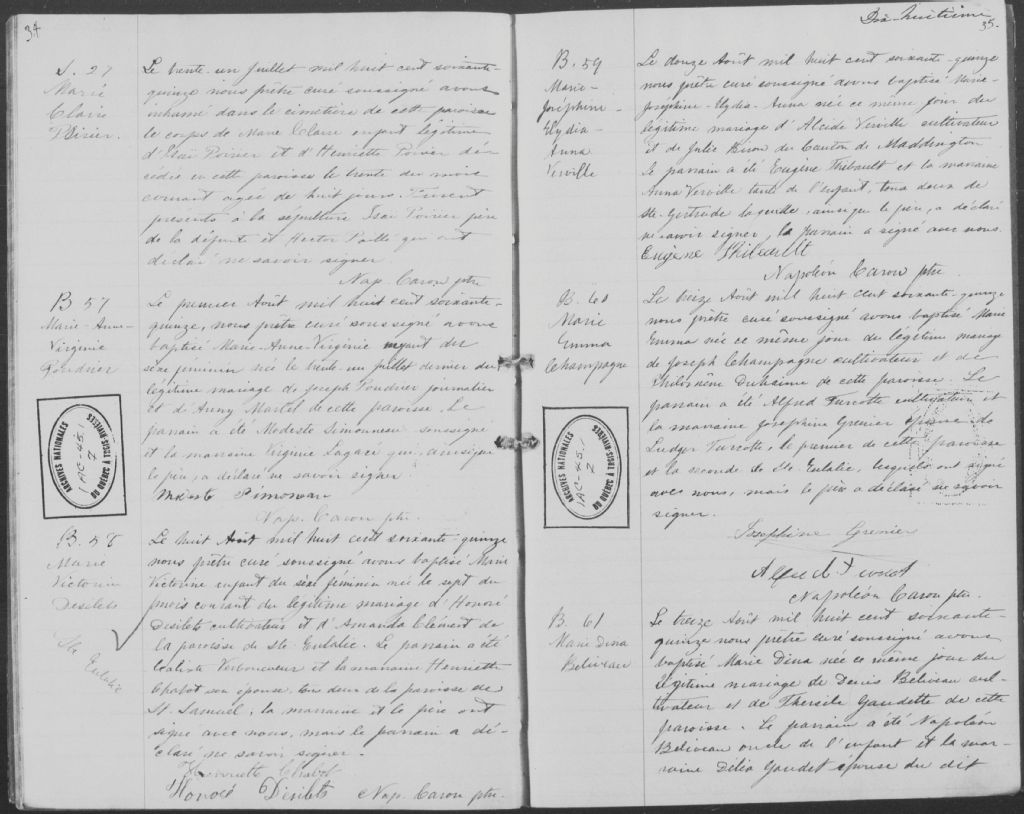 34
S. 27
Marie
Claire
Poirier.
Le trente-un Juillet mil huit cent soixante-
quinze nous prêtre curé soussigné avons
inhumé dans le cimetière de cette paroisse
le corps de Marie Claire enfant légitime
d'Isaï Poirier et d'Henriette Poirier décé
cédée en cette paroisse le trente du mois
courant agée de huit jours. Furent
présents à la sépulture Isaï Poirier père
de la défunte et Hector qui ont
déclaré ne savoir signer.
Nap. Caron ptre
B 57
Marie-Anne-
Virginie
Poudrier
Le premier Août mil huit cent soixante-
quinze, nous prêtre curé soussigné avons
baptisé Marie-Anne-Virginie enfant du
sexe feminin née le trente-un juillet dernier du
légitime mariage de Joseph Poudrier journalier
et d'Anny Martel de cette paroisse. Le
parrain a été Modeste Simonneau soussigné
et la marraine Virginie Lagacé qui, ainsi que
le père, a déclaré ne savoir signer
Modeste Simoneau
Nap. Caron ptre.
ARCHIVES NATIONALES
1AC-45.1
2
DU QUÉBEC À TROIS-RIVIÈRES
B. 58
Marie
Victorine
Desilets
Ste Eulalie
Le huit Août mil huit cent soixante-quinze
nous prêtre curé soussigné avons baptisé Marie
Victorine enfant du sexe féminin née le sept du
mois courant du légitime mariage d'Honoré
Desilets cultivateur et d'Amanda Clément de
la paroisse de Ste. Eulalie. Le parrain a été
Verboncoeur et la marraine Henriette
Chabot son épouse, tous deux de la paroisse de
St. Samuel, la marraine et le père ont
signé avec nous, mais le parrain a dé-
claré ne savoir signer.
Henriette Chabot
Honoré Désilets Nap. Caron ptre.
Dix-huitième
35.
B. 59
Marie-
Joséphine-
Elydia-
Anna
Verville
Le douze Août mil huit cent soixante-quinze
nous prêtre curé soussigné avons baptisé Marie-
Josephine-Elydia-Anna née ce même jour du
légitime mariage d'Alcide Verville cultivateur
et de Julie Biron du Canton de Maddington
Le parrain a été Eugène Thibault et la marraine
Anna Verville tante de l'enfant, tous deux de
Ste. Gertrude laquelle, ainsi que le père, a déclaré
ne savoir signer, le parrain a signé avec nous.
Eugène Thibeault
Napoléon Caron ptre.
B. 60
Marie
Emma
Champagne
Le treize Août mil huit cent soixante-quinze
nous prêtre curé soussigné avons baptisé Marie
Emma née ce même jour du légitime mariage
de Joseph Champagne cultivateur et de
Philomène Duhaime de cette paroisse. Le
parrain a été Alfred Turcotte cultivateur et
la marraine Joséphine Grenier épouse de
Ludger Turcotte, le premier de cette paroisse
et la seconde de Ste. Eulalie, lesquels ont signé
avec nous, mais le père a déclaré ne savoir
signer.
Josephine Grenier
Alfred Turcot
Napoléon Caron ptre.
ARCHIVES NATIONALES
1AC-45.1
2
DU QUÉBEC À TROIS-RIVIÈRES
B. 61
Marie Dina
Beliveau
Le treize Août mil huit cent soixante-
quinze nous prêtre curé soussigné avons
baptisé Marie Dina née ce même jour du
légitime mariage de Denis Beliveau cul-
tivateur et de Thersile Gaudette de cette
paroisse. Le parrain a été Napoléon
Beliveau oncle de l'enfant et la mar-
raine Délia Gaudet épouse du dit